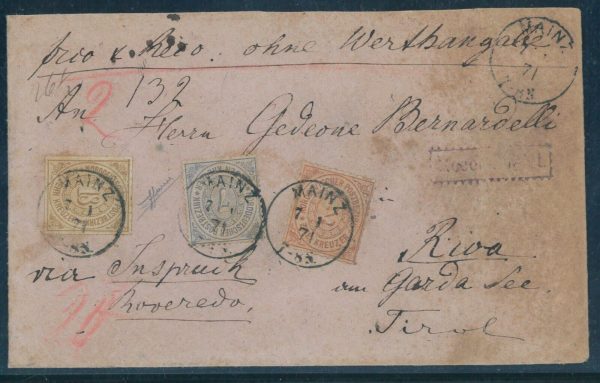 frco & Reco. ohne Werthangabe
MAINZ
7 1
71
7-8N
132
2
An Herrn Gedeone Bernardelli
MAINZ
7 1
71
7-8N
MAINZ
7 1
71
7-8N
MAINZ
7 1
71
7-8N
18
7
2
KREUZER
via Inspruck
Roveredo.
Riva
am Garda See.
Tirol